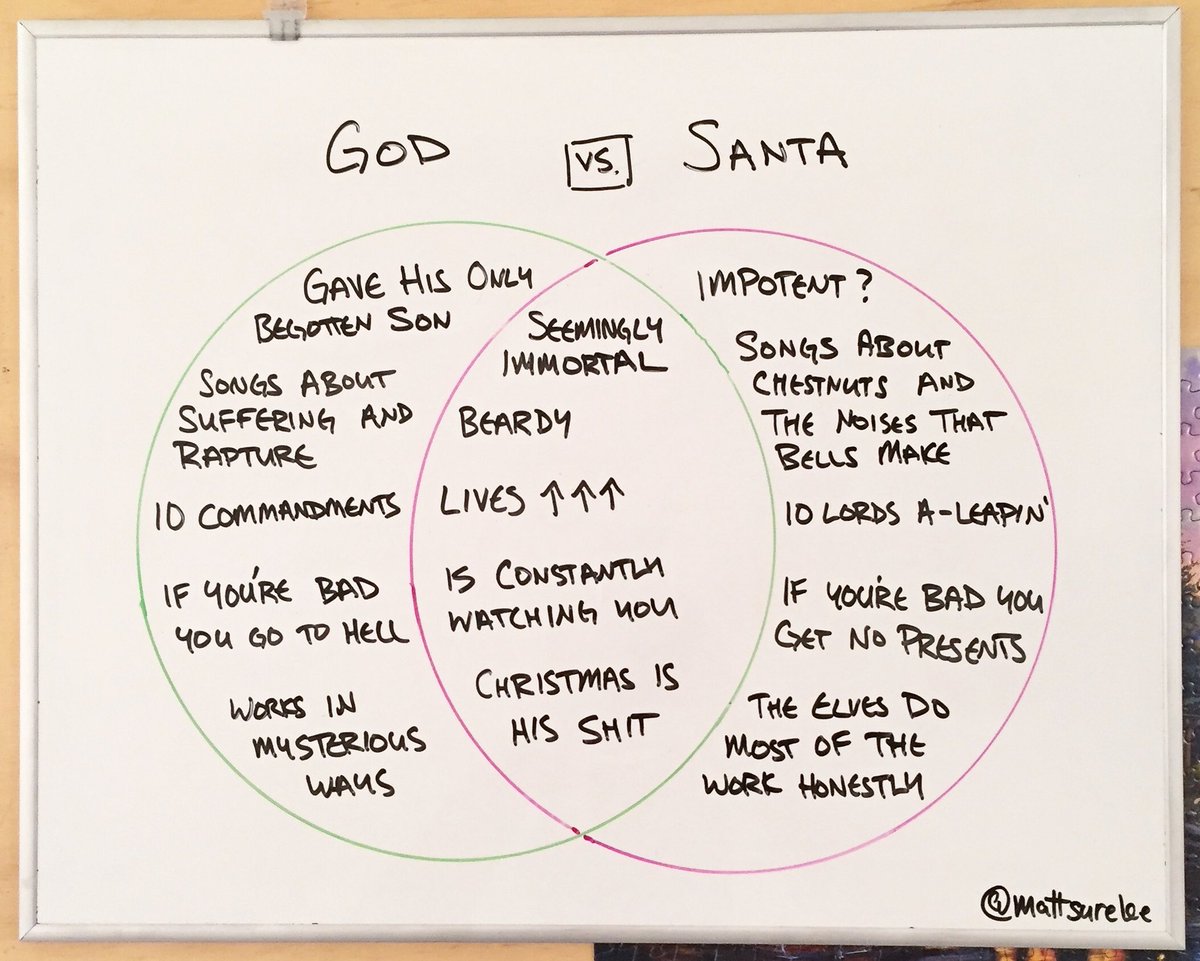 GOD VS. SANTA
GAVE HIS ONLY
BEGOTTEN SON
SONGS ABOUT
SUFFERING AND
RAPTURE
10 COMMANDMENTS
IF YOU'RE BAD
YOU GO TO HELL
WORKS IN
MYSTERIOUS
WAYS
SEEMINGLY
IMMORTAL
BEARDY
LIVES ↑↑↑
IS CONSTANTLY
WATCHING YOU
CHRISTMAS IS
HIS SHIT
IMPOTENT?
SONGS ABOUT
CHESTNUTS AND
THE NOISES THAT
BELLS MAKE
10 LORDS A-LEAPIN'
IF YOU'RE BAD YOU
GET NO PRESENTS
THE ELVES DO
MOST OF THE
WORK HONESTLY
@mattsurelee